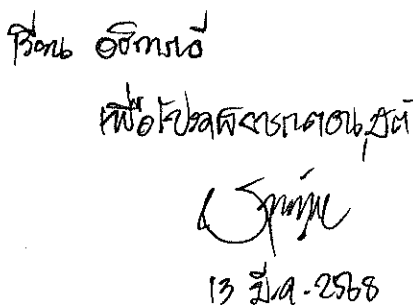 เรียน อธิการบดี
เพื่อโปรดพิจารณาอนุมัติ
13 มี.ค. 2568